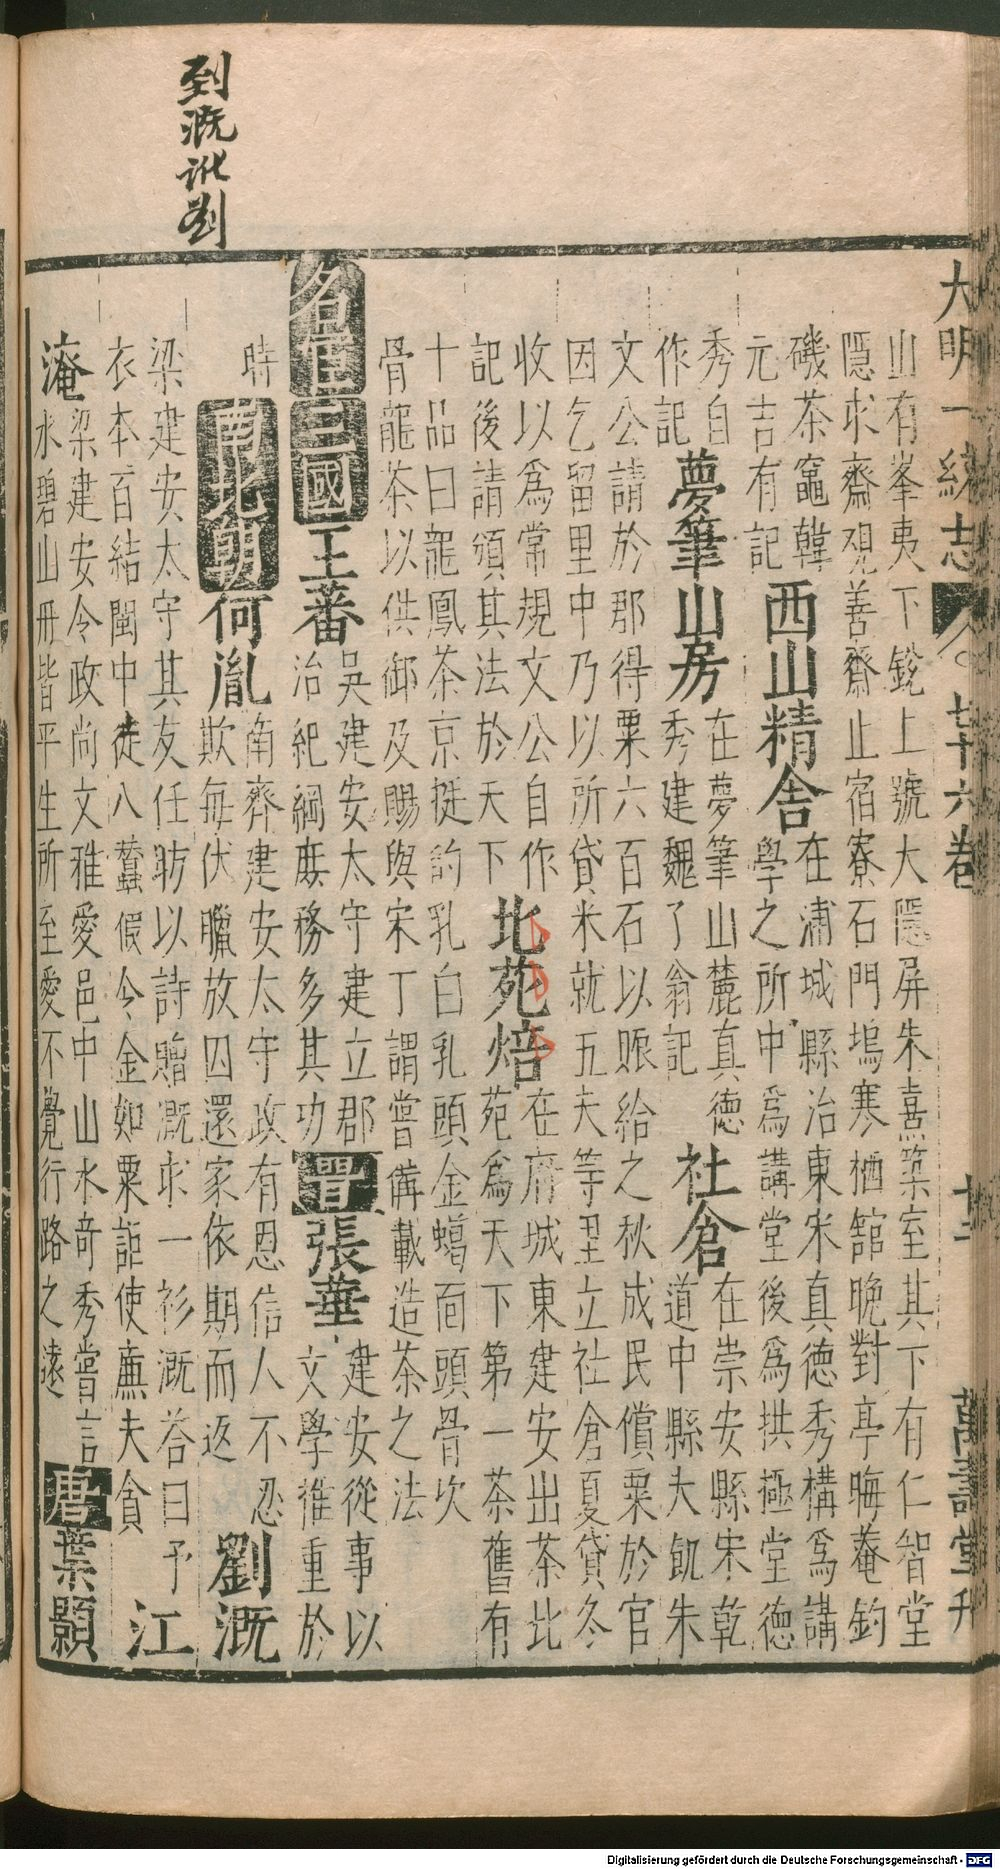 到溉訛劉
大明一統志 七十六卷 十一 萬壽堂刋
山有峯夷下銳上號大隱屏朱熹築室其下有仁智堂
隱求齋觀善齋止宿寮石門塢寒栖館晚對亭晦菴釣
磯茶竈韓元吉有記
西山精舍
在浦城縣治東宋真德秀構爲講
學之所中爲講堂後爲拱極堂德
秀自作記
夢筆山房
在夢筆山麓真德
秀建魏了翁記
社倉
在崇安縣宋乾
道中縣大飢朱
文公請於郡得粟六百石以賑給之秋成民償粟於官
因乞留里中乃以所貸米就五夫等里立社倉夏貸冬
收以爲常規文公自作記後請頒其法於天下
北苑焙
在府城東建安出茶北
苑爲天下第一茶舊有
十品曰龍鳳茶京挺的乳白乳頭金蠟面頭骨次
骨龍茶以供御及賜與宋丁謂嘗備載造茶之法
名宦
三國
王蕃
吳建安太守建立郡
治紀綱庶務多其功
晋
張華
建安從事以
文學推重於
時
南北朝
何胤
南齊建安太守政有恩信人不忍
欺每伏臘放囚還家依期而返
劉溉
梁建安太守其友任昉以詩贈溉求一衫溉荅曰予
衣本百結閩中徒八蠶假令金如粟詎使亷夫貪
江淹
梁建安令政尚文雅愛邑中山水奇秀嘗言
水碧山丹皆平生所至愛不覺行路之遠
唐
葉顥
Digitalisierung gefördert durch die Deutsche Forschungsgemeinschaft - DFG